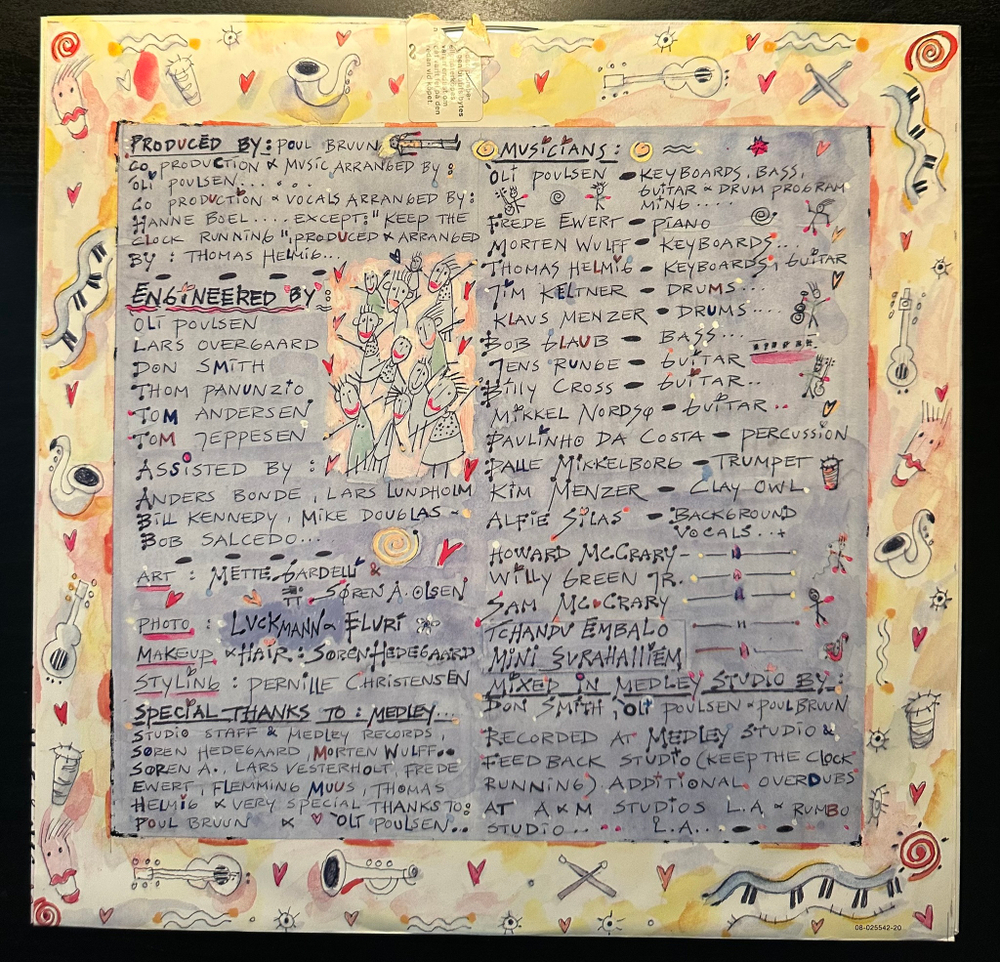 PRODUCED BY: POUL BRUUN
CO PRODUCTION & MUSIC ARRANGED BY:
OLI POULSEN.....
CO PRODUCTION & VOCALS ARRANGED BY:
HANNE BOEL.... EXCEPT: "KEEP THE
CLOCK RUNNING" PRODUCED & ARRANGED
BY: THOMAS HELMIG...
ENGINEERED BY:
OLI POULSEN
LARS OVERGAARD
DON SMITH
THOM PANUNZIO
TOM ANDERSEN
TOM JEPPESEN
ASSISTED BY:
ANDERS BONDE, LARS LUNDHOLM
BILL KENNEDY, MIKE DOUGLAS &
BOB SALCEDO....
ART: METTE GARDELL &
SØREN A. OLSEN
PHOTO: LUCKMANN & ELURI
MAKEUP & HAIR: SØREN HEDEGAARD
STYLING: PERNILLE CHRISTENSEN
SPECIAL THANKS TO: MEDLEY...
STUDIO STAFF & MEDLEY RECORDS,
SØREN HEDEGAARD, MORTEN WULFF..
SØREN A., LARS VESTERHOLT, FREDE
EWERT, FLEMMING MUUS, THOMAS
HELMIG & VERY SPECIAL THANKS TO:
POUL BRUUN & OLI POULSEN..
MUSICIANS:
OLI POULSEN - KEYBOARDS, BASS,
GUITAR & DRUM PROGRAM
MING....
FREDE EWERT - PIANO
MORTEN WULFF - KEYBOARDS...
THOMAS HELMIG - KEYBOARDS, GUITAR
JIM KELTNER - DRUMS...
KLAUS MENZER - DRUMS...
BOB GLAUB - BASS....
JENS RUNGE - GUITAR
BILLY CROSS - GUITAR..
MIKKEL NORDSØ - GUITAR..
PAULINHO DA COSTA - PERCUSSION
PALLE MIKKELBORG - TRUMPET
KIM MENZER - CLAY OWL
ALFIE SILAS - BACKGROUND
VOCALS...
HOWARD McCRARY
WILLY GREEN JR.
SAM McCRARY
TCHANDU EMBALO
MINI SURAHALLIEM
MIXED IN MEDLEY STUDIO BY:
DON SMITH, OLI POULSEN & POUL BRUUN
RECORDED AT MEDLEY STUDIO &
FEED BACK STUDIO (KEEP THE CLOCK
RUNNING) ADDITIONAL OVERDUBS
AT A&M STUDIOS L.A & RUMBO
STUDIO... L.A...
08-025542-20